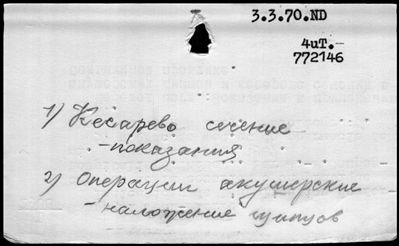 3.3.70.ND
4uT.-
772146
1) Кесарево сечение
-показания
2) Операции акушерские
-наложение щипцов